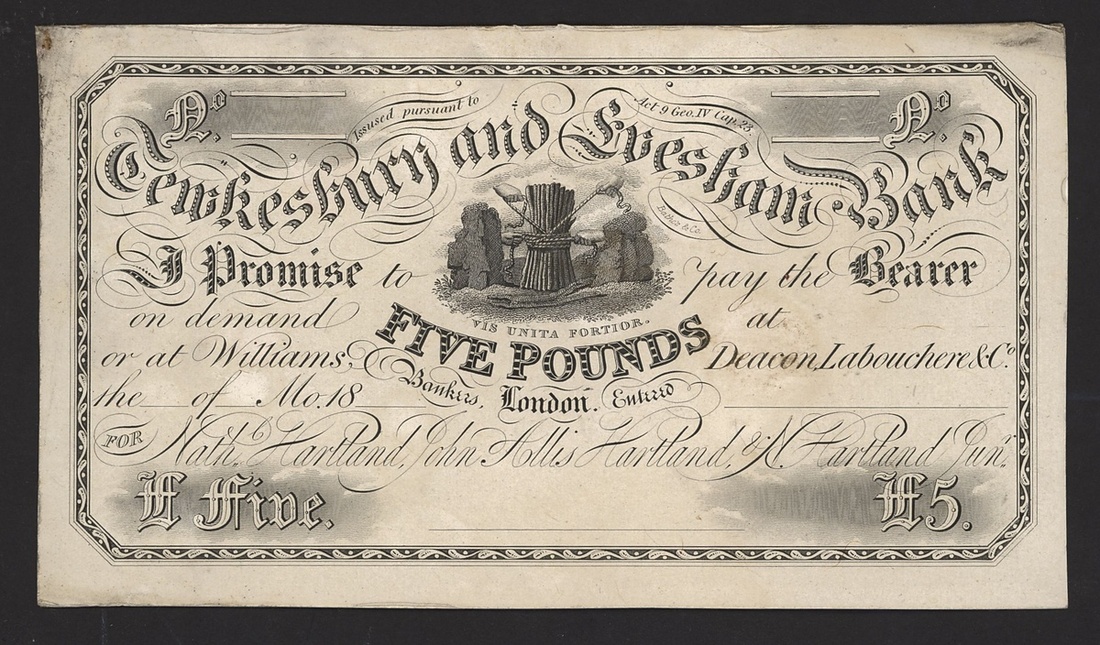 No. No.
Issued pursuant to Act 9 Geo. IV Cap. 23.
Tewkesbury and Evesham Bank
I Promise to pay the Bearer
VIS UNITA FORTIOR.
on demand FIVE POUNDS at
or at Williams, Deacon, Labouchere & Co.
Bankers, London. Entered
the of Mo. 18
FOR Nathl. Hartland, John Allis Hartland, & N. Hartland Junr.
£ Five. £5.